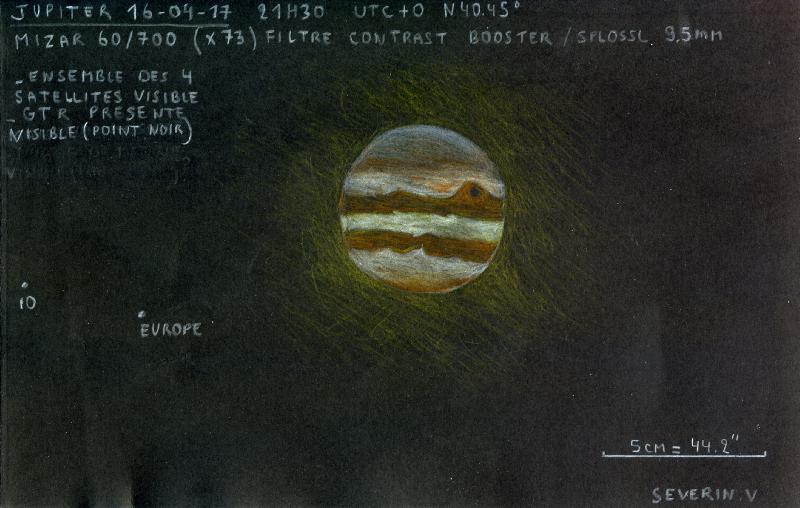 JUPITER 16-04-17 21H30 UTC+0 N40.45°
MIZAR 60/700 (X73) FILTRE CONTRAST BOOSTER / SPLOSSL 9,5mm
- ENSEMBLE DES 4
SATELLITES VISIBLE
- GTR PRESENTE
VISIBLE (POINT NOIR)
IO
EUROPE
5CM = 44.2"
SEVERIN.V